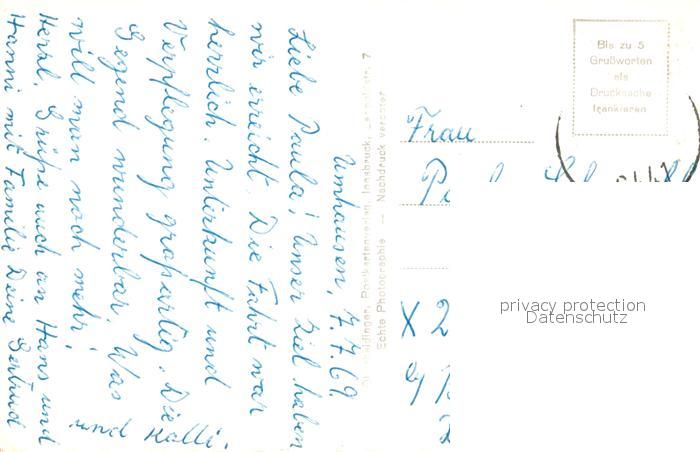 Umhausen, 7.7.69.
Liebe Paula! Unser Ziel haben
wir erreicht. Die Fahrt war
herrlich. Unterkunft und
Verpflegung großartig. Die
Gegend wunderbar. Was
will man noch mehr!
Herzl. Grüße auch an Hans und
Hanni mit Familie Deine Gertrud
und Kalli.
Postkartenverlag, Innsbruck,
Echte Photographie — Nachdruck verboten
Bis zu 5
Grußworten
als
Drucksache
frankieren
Frau
X 2
privacy protection
Datenschutz